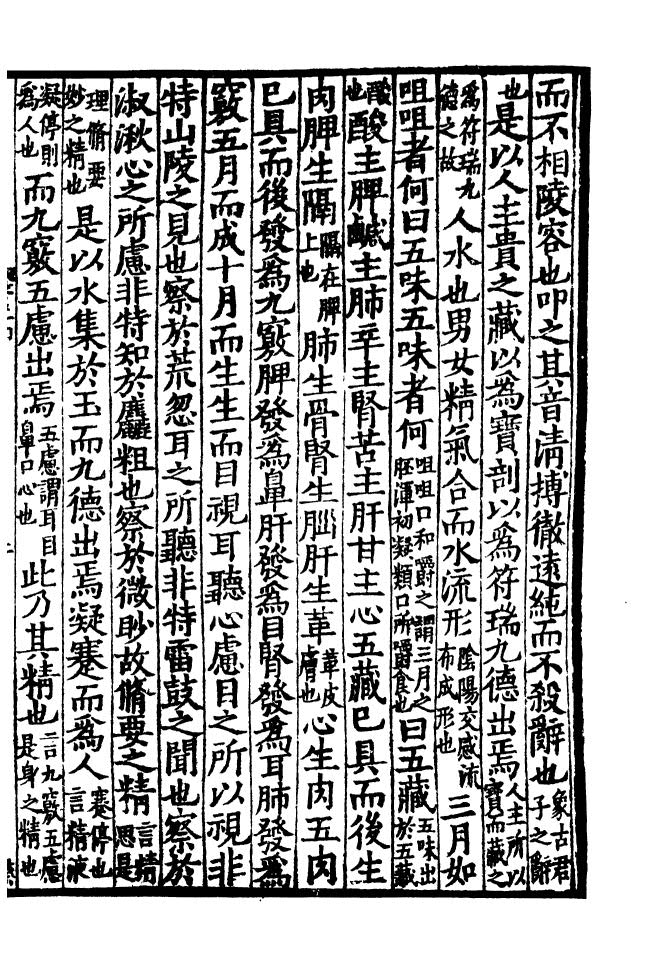 而不相陵容也叩之其音清搏徹遠純而不殺辭也象古君子之辭
也是以人主貴之藏以為寶剖以為符瑞九德出焉人主所以寳而藏之
為符瑞九德之故人水也男女精氣合而水流形陰陽交感流布成形也三月如
咀咀者何曰五味五味者何咀咀口和嚼之謂三月之胚渾初凝類口所嚼食也曰五藏五味出於五藏
也酸酸主脾鹹主肺辛主腎苦主肝甘主心五藏已具而後生
肉脾生隔隔在脾上也肺生骨腎生腦肝生革革皮膚也心生肉五肉
已具而後發為九竅脾發為鼻肝發為目腎發為耳肺發為
竅五月而成十月而生生而目視耳聽心慮目之所以視非
特山陵之見也察於荒忽耳之所聽非特雷鼓之聞也察於
淑湫心之所慮非特知於麤粗也察於微眇故脩要之精言精思是
理脩要妙之精也是以水集於玉而九德出焉凝蹇而為人蹇停也言精液
凝停則為人也而九竅五慮出焉五慮謂耳目鼻口心也此乃其精也言九竅五慮是身之精也